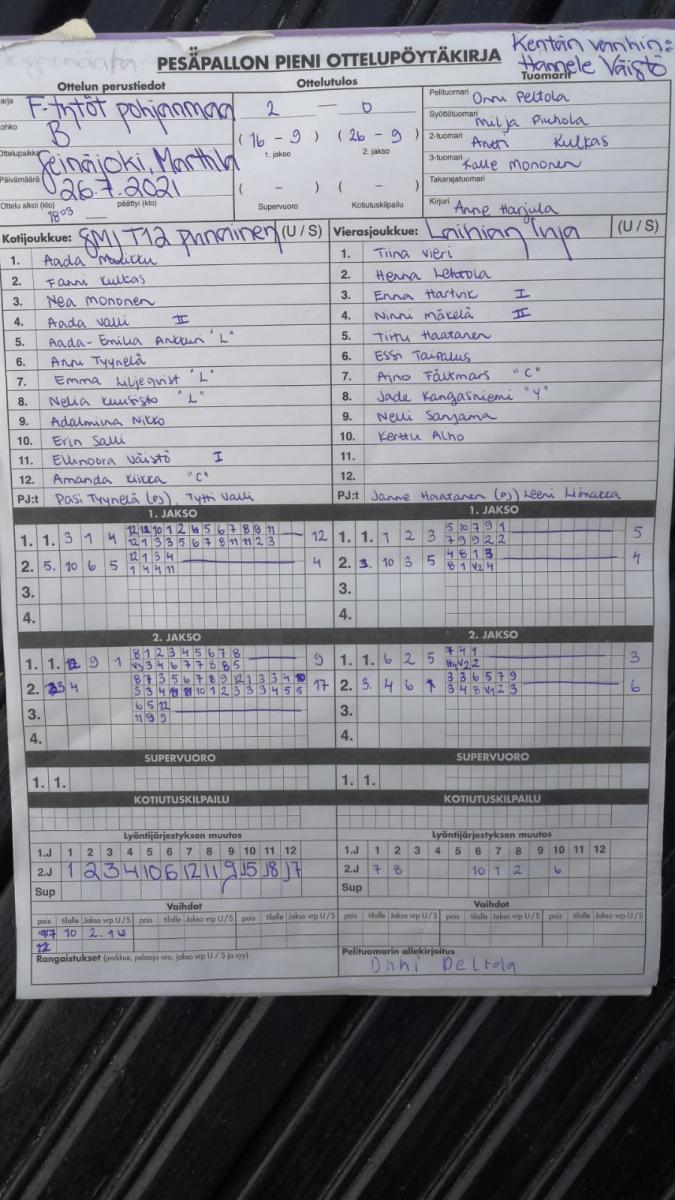 PESÄPALLON PIENI OTTELUPÖYTÄKIRJA
Kentän vanhin:
Hannele Väistö
Ottelun perustiedot
Ottelutulos
Tuomarit
F-tytöt pohjanmaa
B
Ottelupaikka
Seinäjoki, Marttila
Päivämäärä
26.7.2021
Ottelu alkoi (klo) päättyi (klo)
18 03
2 — 0
( 16 - 9 ) ( 26 - 9 )
1. jakso 2. jakso
( - ) ( - )
Supervuoro Kotiutuskilpailu
Pelituomari Onni Peltola
Syöttötuomari Milja Piuhola
2-tuomari Antti Kulkas
3-tuomari Kalle Mononen
Takarajatuomari
Kirjuri Anne Harjula
Kotijoukkue: SMJ T12 punainen (U / S)
1. Aada
2. Fanni Kulkas
3. Nea Mononen
4. Aada Valli II
5. Aada-Emilia Ankkuri "L"
6. Anni Tyynelä
7. Emma Liljeqvist "L"
8. Nelia Kuusisto "L"
9. Adalmiina Nikko
10. Erin Salli
11. Ellinoora Väistö I
12. Amanda Kiikka "C"
PJ:t Pasi Tyynelä (PJ), Tytti Valli
Vierasjoukkue: Laihian Luja (U / S)
1. Tiina Vieri
2. Henna Lehtola
3. Enna Hartvik I
4. Ninni Mäkelä II
5. Tiitu Haatanen
6. Essi Taipalus
7. Aino Fältmars "C"
8. Jade Kangasniemi "Y"
9. Nelli Sanjama
10. Kerttu Alho
11.
12.
PJ:t Janne Haatanen (PJ) Leeni Liimakka
1. JAKSO
1. 1. 3 1 4 12 12 10 1 2 4 5 6 7 8 9 11 12
12 1 3 3 5 6 7 8 11 11 2 3
2. 5. 10 6 5 12 1 3 4 4
1 4 4 11
3.
4.
1. JAKSO
1. 1. 1 2 3 5 10 7 9 1 5
7 9 9 2 2
2. 3. 10 3 5 4 8 1 3 4
8 1 V2 4
3.
4.
2. JAKSO
1. 1. 9 1 8 1 2 3 4 5 6 7 8 9
V3 3 4 6 7 7 8 8 5
2. 4 8 7 3 5 6 7 8 9 12 1 3 3 4 10 17
5 3 4 11 11 10 1 2 3 3 3 4 5 5
3. 6 5 12
11 9 9
4.
2. JAKSO
1. 1. 6 2 5 7 4 1 3
V2 2
2. 3. 4 6 1 3 3 6 5 7 9 6
3 4 8 V1 2 3
3.
4.
SUPERVUORO
1. 1.
SUPERVUORO
1. 1.
KOTIUTUSKILPAILU
KOTIUTUSKILPAILU
Lyöntijärjestyksen muutos
1.J 1 2 3 4 5 6 7 8 9 10 11 12
2.J 1 2 3 4 10 6 12 11 9 15 18 17
Sup
Lyöntijärjestyksen muutos
1.J 1 2 3 4 5 6 7 8 9 10 11 12
2.J 7 8 10 1 2 6
Sup
Vaihdot
pois tilalle Jakso vrp U/S pois tilalle Jakso vrp U/S pois tilalle Jakso vrp U/S
10 2.1U
12
Vaihdot
pois tilalle Jakso vrp U/S pois tilalle Jakso vrp U/S pois tilalle Jakso vrp U/S
Rangaistukset (joukkue, pelaaja nro, jakso vrp U / S ja syy)
Pelituomarin allekirjoitus
Onni Peltola